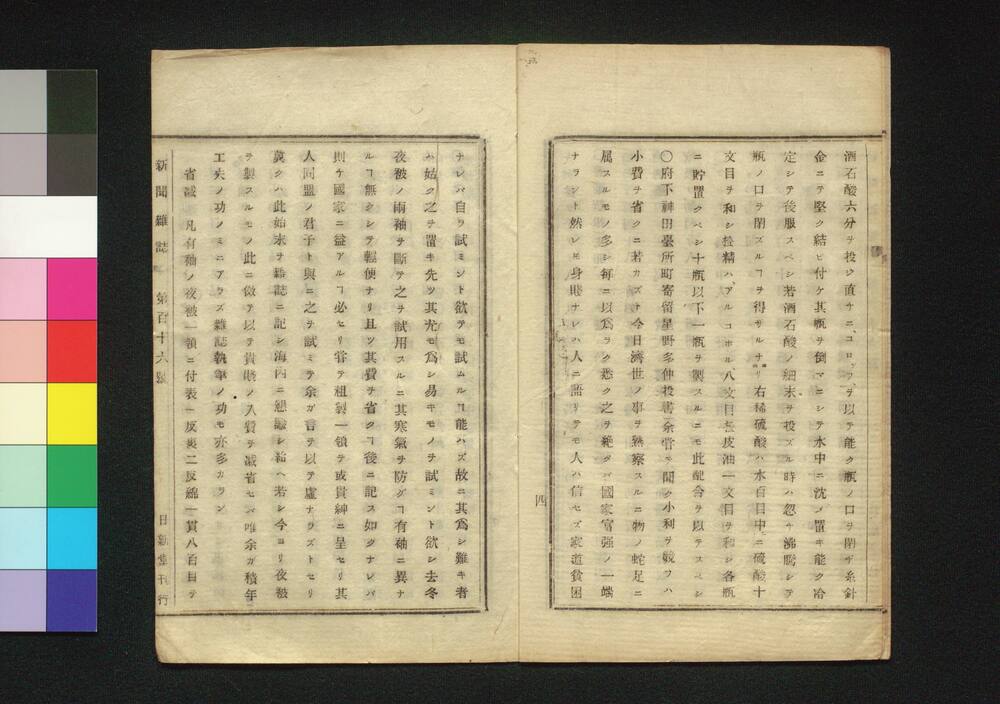 酒石酸六分ヲ投シ直チニ「コロツフ」ヲ以テ能ク瓶ノ口ヲ閉ヂ糸針
金ニテ堅ク結ヒ付ケ其瓶ヲ倒マニシテ水中ニ沈メ置キ能ク冷
定シテ後服スベシ若酒石酸ノ細末ヲ投ズル時ハ忽チ沸騰シテ
瓶ノ口ヲ閉ズルヿヲ得サルナリ右稀硫酸ハ水百目中ニ硫酸十
文目ヲ和シ橙精ハアルコホル八文目橙皮油一文目ヲ和シ各瓶
ニ貯置クベシ十瓶以下一瓶ヲ製スルニモ此配合ヲ以テスベシ
〇府下神田臺所町寄留星野多仲投書余嘗テ聞ク小利ヲ競フハ
小費ヲ省クニ若カズト今日濟世ノ事ヲ熟察スルニ物ノ蛇足ニ
屬スルモノ多シ毎ニ以爲ラク悉ク之ヲ絶タバ國家富强ノ一端
ナラント然レモ身賤ナレハ人ニ語リテモ人ハ信セズ家道貧困
四
ナレバ自ラ試ミント欲テモ試ムルヿ能ハズ故ニ其爲シ難キ者
ハ姑ク之ヲ置キ先ツ其尤モ爲シ易キモノヲ試ミント欲シ去冬
夜被ノ兩袖ヲ斷テ之ヲ試用スルニ其寒氣ヲ防グヿ有袖ニ異ナ
ルヿ無クシテ輕便ナリ且ツ其費ヲ省クヿ後ニ記ス如クナレバ
則チ國家ニ益アルヿ必セリ嘗テ粗製一領ヲ或貴紳ニ呈セリ其
人同盟ノ君子ト與ニ之ヲ試ミテ余ガ言ヲ以テ虛ナラズトセリ
冀クハ此始末ヲ雜誌ニ記シ海内ニ
給ヘ若シ今ヨリ夜被
ヲ製スルモノ此ニ倣テ以テ貴賤ノ入費ヲ减省セバ唯余ガ積年
工夫ノ功ノミニアラズ雜誌執筆ノ功モ亦多カラン
省減 凡有袖ノ夜被一領ニ付表一反裏二反綿一貫八百目ヲ
新聞雜誌 第百十六號
日新堂刊行